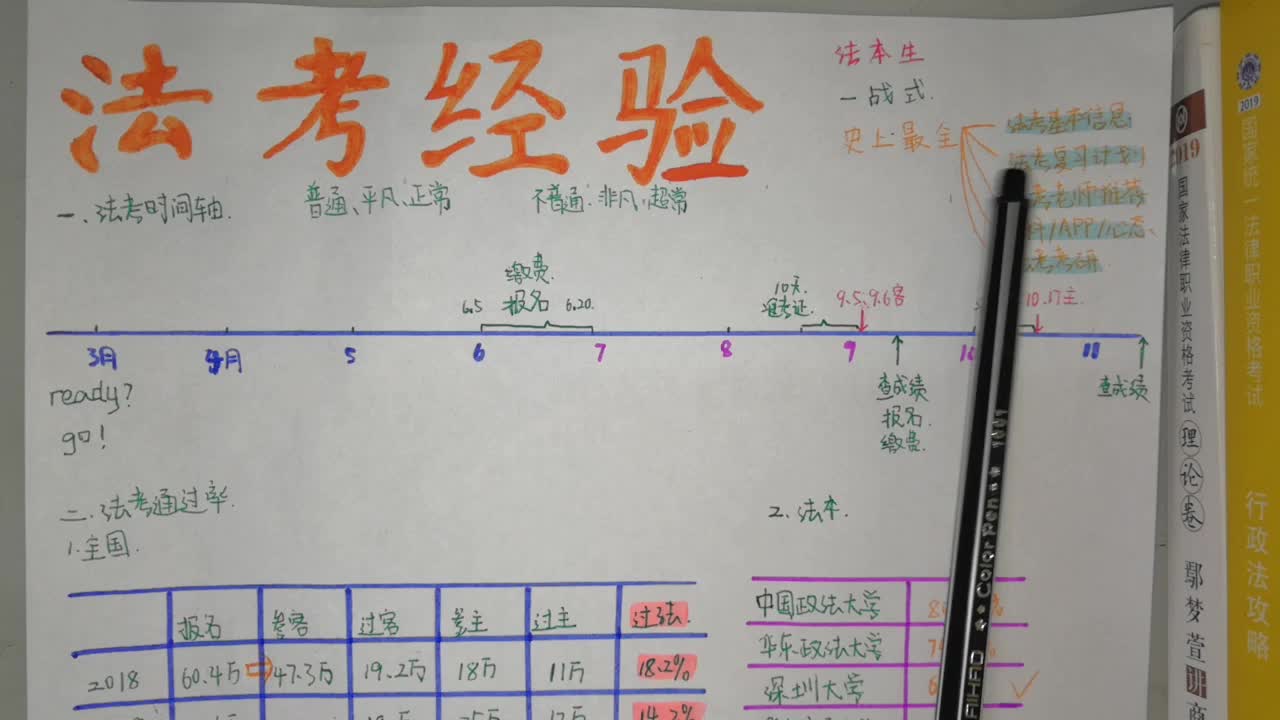 法考经验
法本生
一战式.
史上最全
法考基本信息
法考复习计划
考老师推荐
/APP/心态、
法考考研
一、法考时间轴.
普通、平凡、正常
不普通、非凡、超常
缴费.
6.5 报名 6.20.
10天.
准考证.
9.5、9.6客
10.17主.
3月 4月 5 6 7 8 9 11
ready?
go!
查成绩
报名.
缴费.
查成绩
二.法考通过率.
1.全国.
报名 参客 过客 参主 过主 过法.
2018 60.4万 47.3万 19.2万 18万 11万 18.2%
14.2%
2.法本.
中国政法大学
华东政法大学
深圳大学
ColorPen
1001
2019
国家法律职业资格考试
理论卷
鄢梦萱讲商
2019
国家统一法律职业资格考试
行政法攻略